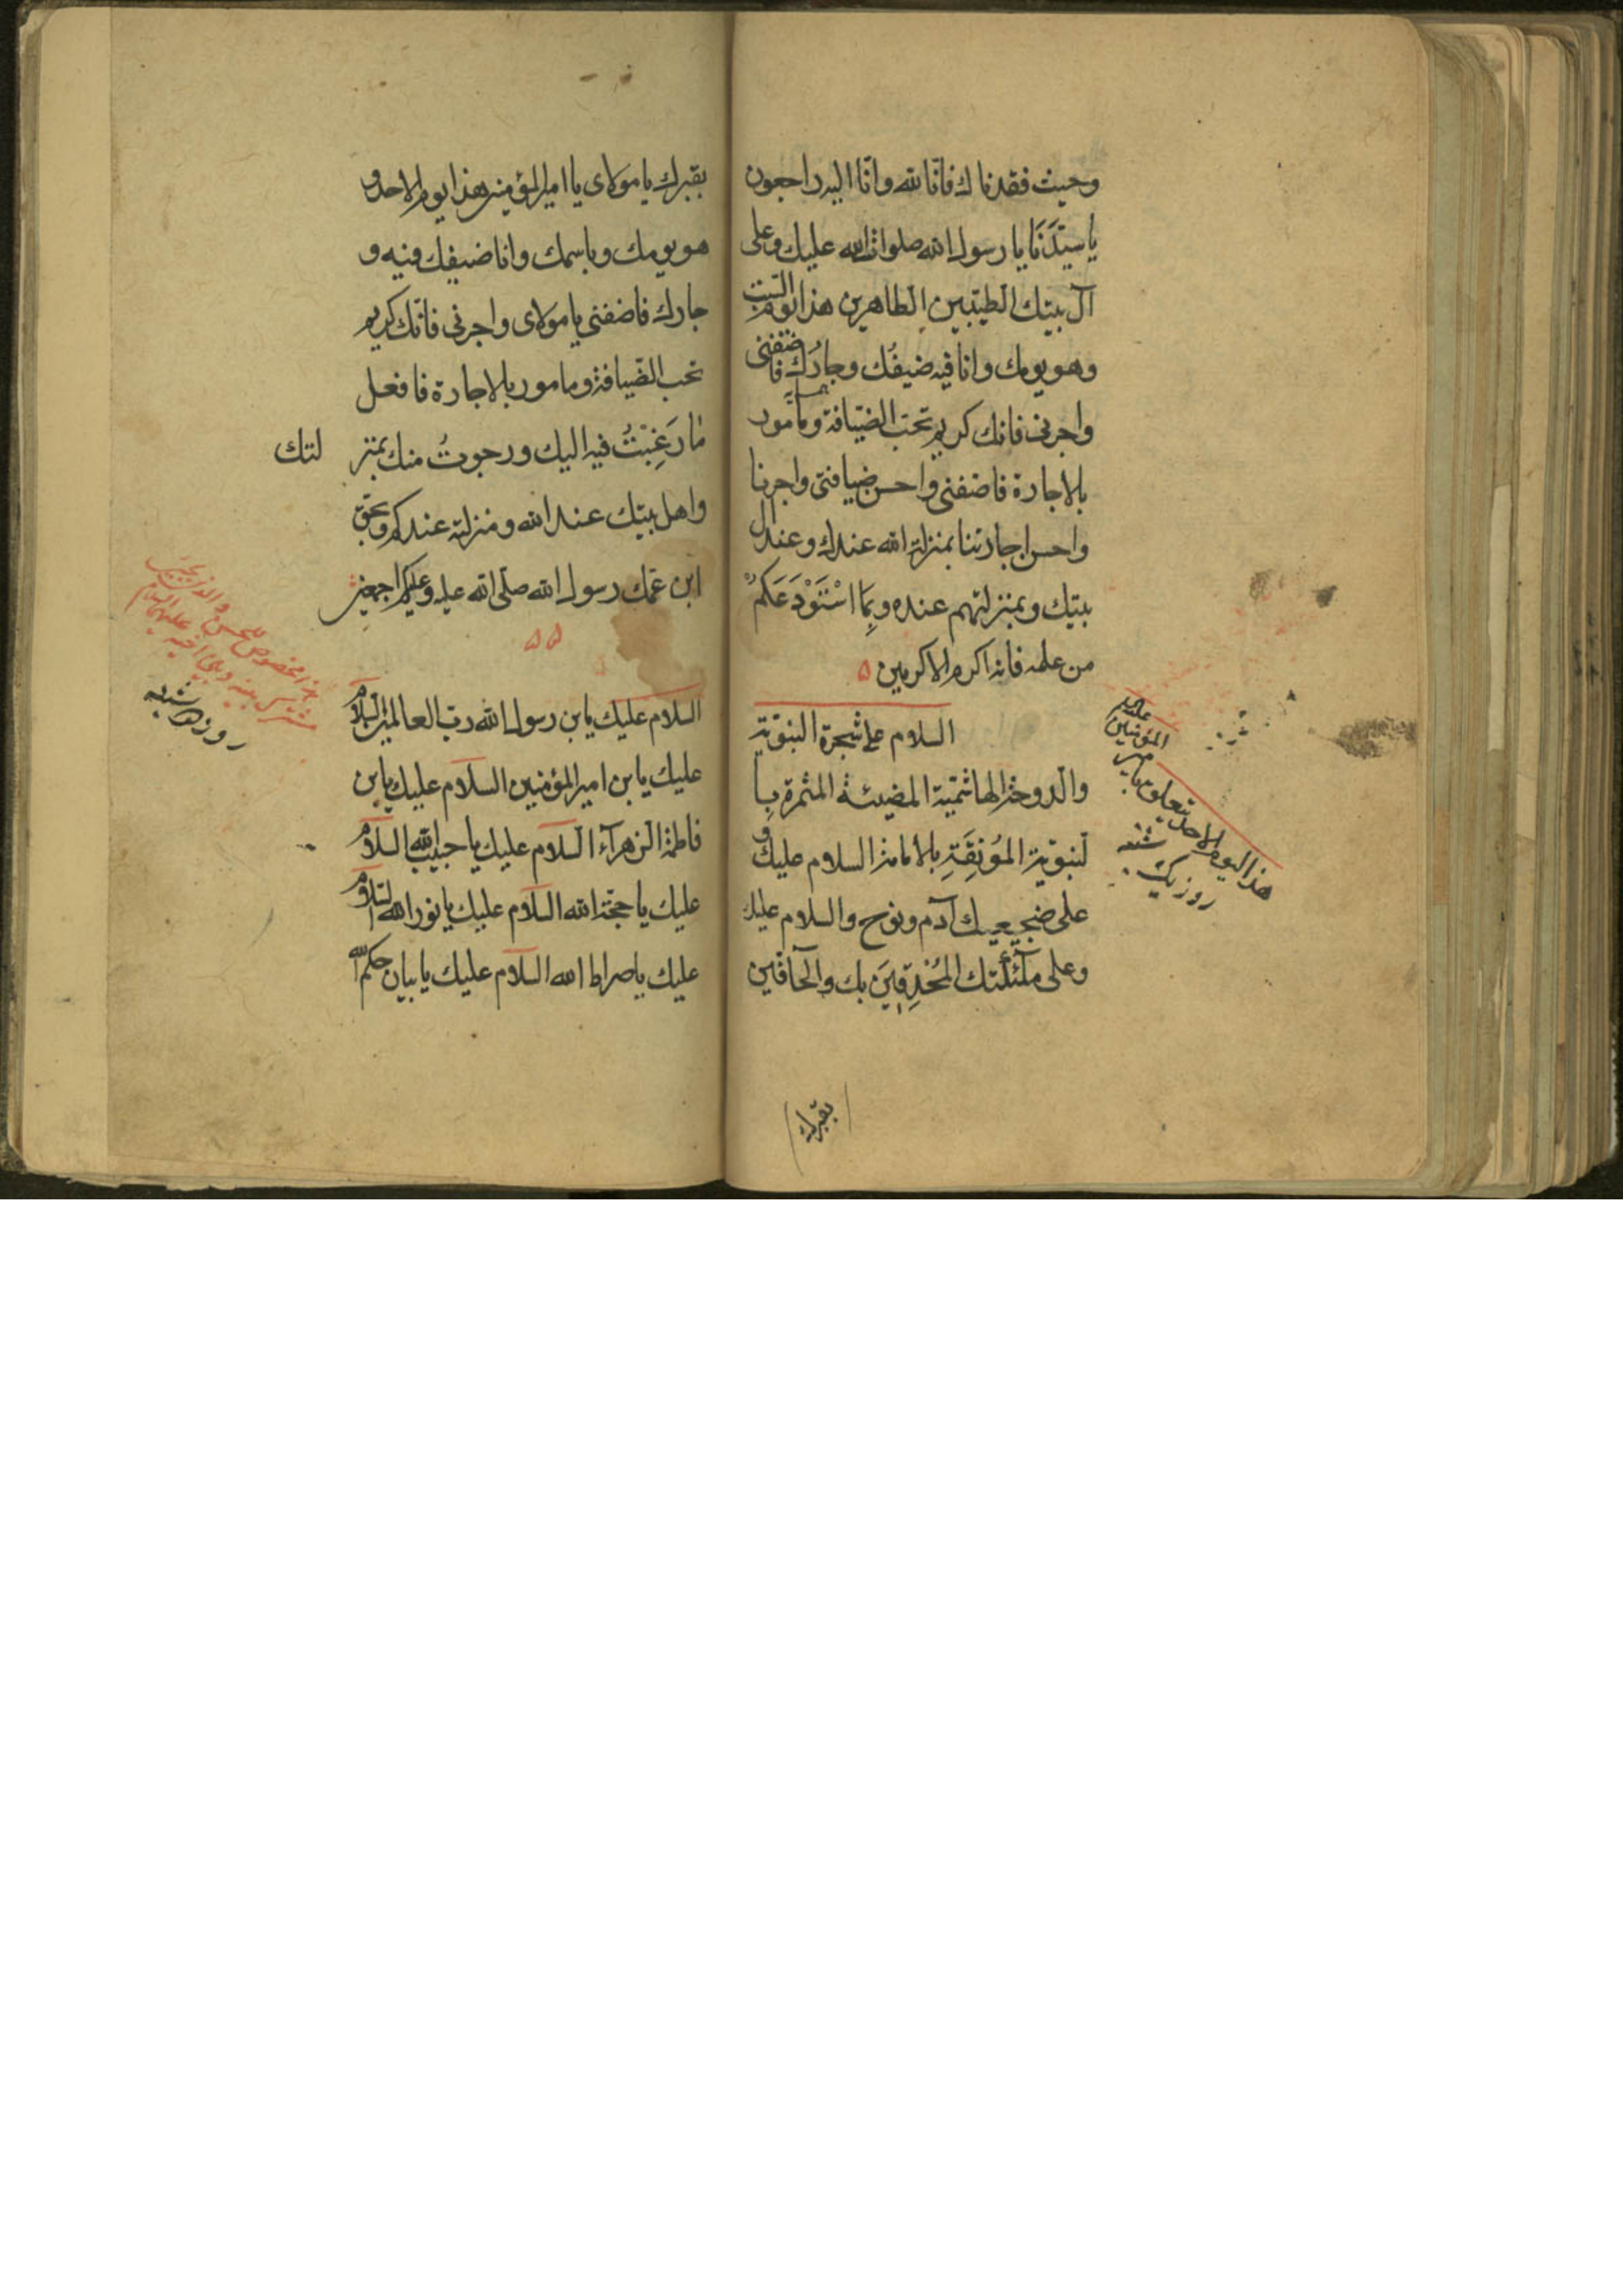 وحيث فقدناك فانّا لله وانّا اليه راجعون
يا سيّدَنَا يا رسول الله صلوات الله عليك وعلى
آل بيتك الطيّبين الطاهرين هذا يوم السّبت
وهو يومك وانا فيه ضيفُك وجارُك فاضفنى
واجرنى فانك كريم تحبّ الضيّافة ومأمور
بالاجارة فاضفنى واحسن ضيافتى واجرنا
واحسن اجارتنا بمنزلة الله عندك وعند ال
بيتك وبمنزلتهم عنده وبِمَا اسْتَوْدَعَكم
من علمه فانه اكرم الاكرمين
السلام على شجرة النبوّية
والدوحة الهاشميّة المضيئة المثمرة بِا
لنبوّية المُونِقَةِ بالامامة السلام عليك و
على ضجيعيك آدم ونوح والسلام عليك
وعلى ملآئكتك المُحْدِقِينَ بك والحآفّين
هذا اليوم الاحد يتعلق بامير
المؤمنين
عليه
روز يک شنبه
بقبرك
بقبرك يا مولاى يا امير المؤمنين هذا يوم الاحد و
هو يومك وباسمك وانا ضيفك فيه و
جارك فاضفنى يا مولاى واجرنى فانّك كريم
تحب الضيافة ومامور بالاجارة فافعل
ما رَغِبْتُ فيه اليك ورجوتُ منك بمنز لتك
واهل بيتك عند الله ومنزلته عندكم وبحقّ
ابن عمّك رسول الله صلّى الله عليه وعليكم اجمعين
السلام عليك يابن رسول الله ربّ العالمين السلام
عليك يابن امير المؤمنين السلام عليك يابن
فاطمة الزهرآء السلام عليك يا حبيب الله السلام
عليك يا حجّة الله السلام عليك يا نور الله السلام
عليك يا صراط الله السلام عليك يا بيان حكم الله
مخصوص للحسن والحسين
عليهما السلام
روز دوشنبه